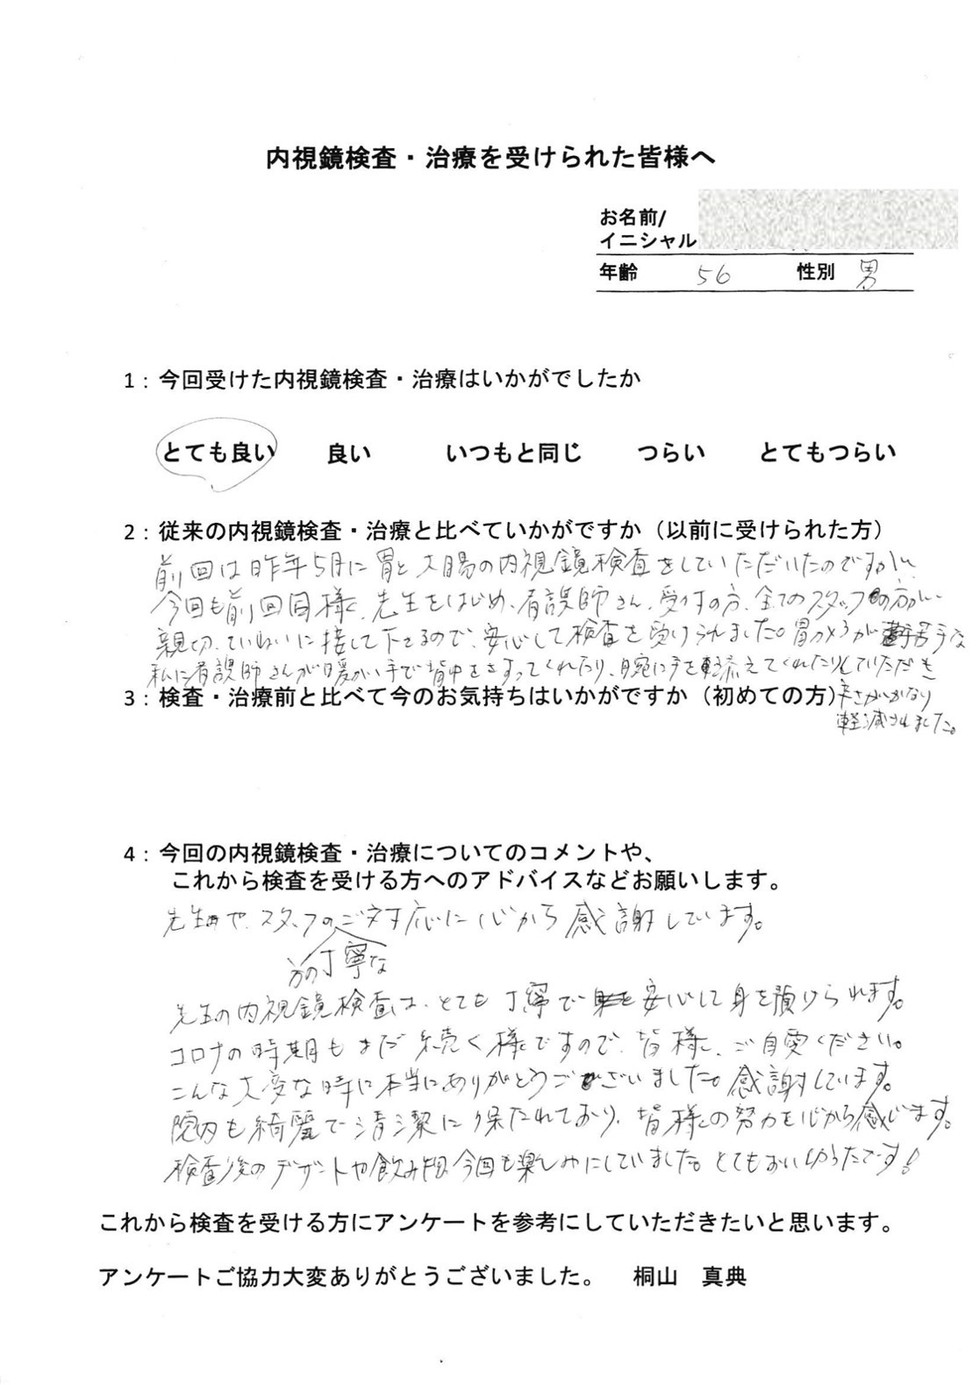 内視鏡検査・治療を受けられた皆様へ
お名前/
イニシャル
年齢 56 性別 男
1：今回受けた内視鏡検査・治療はいかがでしたか
とても良い 良い いつもと同じ つらい とてもつらい
2：従来の内視鏡検査・治療と比べていかがですか（以前に受けられた方）
前回は昨年5月に胃と大腸の内視鏡検査をしていただいたのですが、
今回も前回同様に、先生をはじめ、看護師さん、受付の方、全てのスタッフの方が、
親切、ていねいに接して下さるので、安心して検査を受けられました。胃カメラが苦手な
私に看護師さんが暖かい手で背中をさすってくれたり、腕に手を添えてくれたりしていただき
3：検査・治療前と比べて今のお気持ちはいかがですか（初めての方）
辛さがかなり
軽減されました。
4：今回の内視鏡検査・治療についてのコメントや、
これから検査を受ける方へのアドバイスなどお願いします。
先生や、スタッフのご対応に心から感謝しています。
方の丁寧な
先生の内視鏡検査は、とても丁寧で安心して身を預けられます。
コロナの時期もまだ続く様ですので、皆様、ご自愛ください。
こんな大変な時に本当にありがとうございました。感謝しています。
院内も綺麗で清潔に保たれており、皆様の努力を心から感じます。
検査後のデザートや飲み物 今回も楽しみにしていました。とてもおいしかったです！
これから検査を受ける方にアンケートを参考にしていただきたいと思います。
アンケートご協力大変ありがとうございました。 桐山 真典